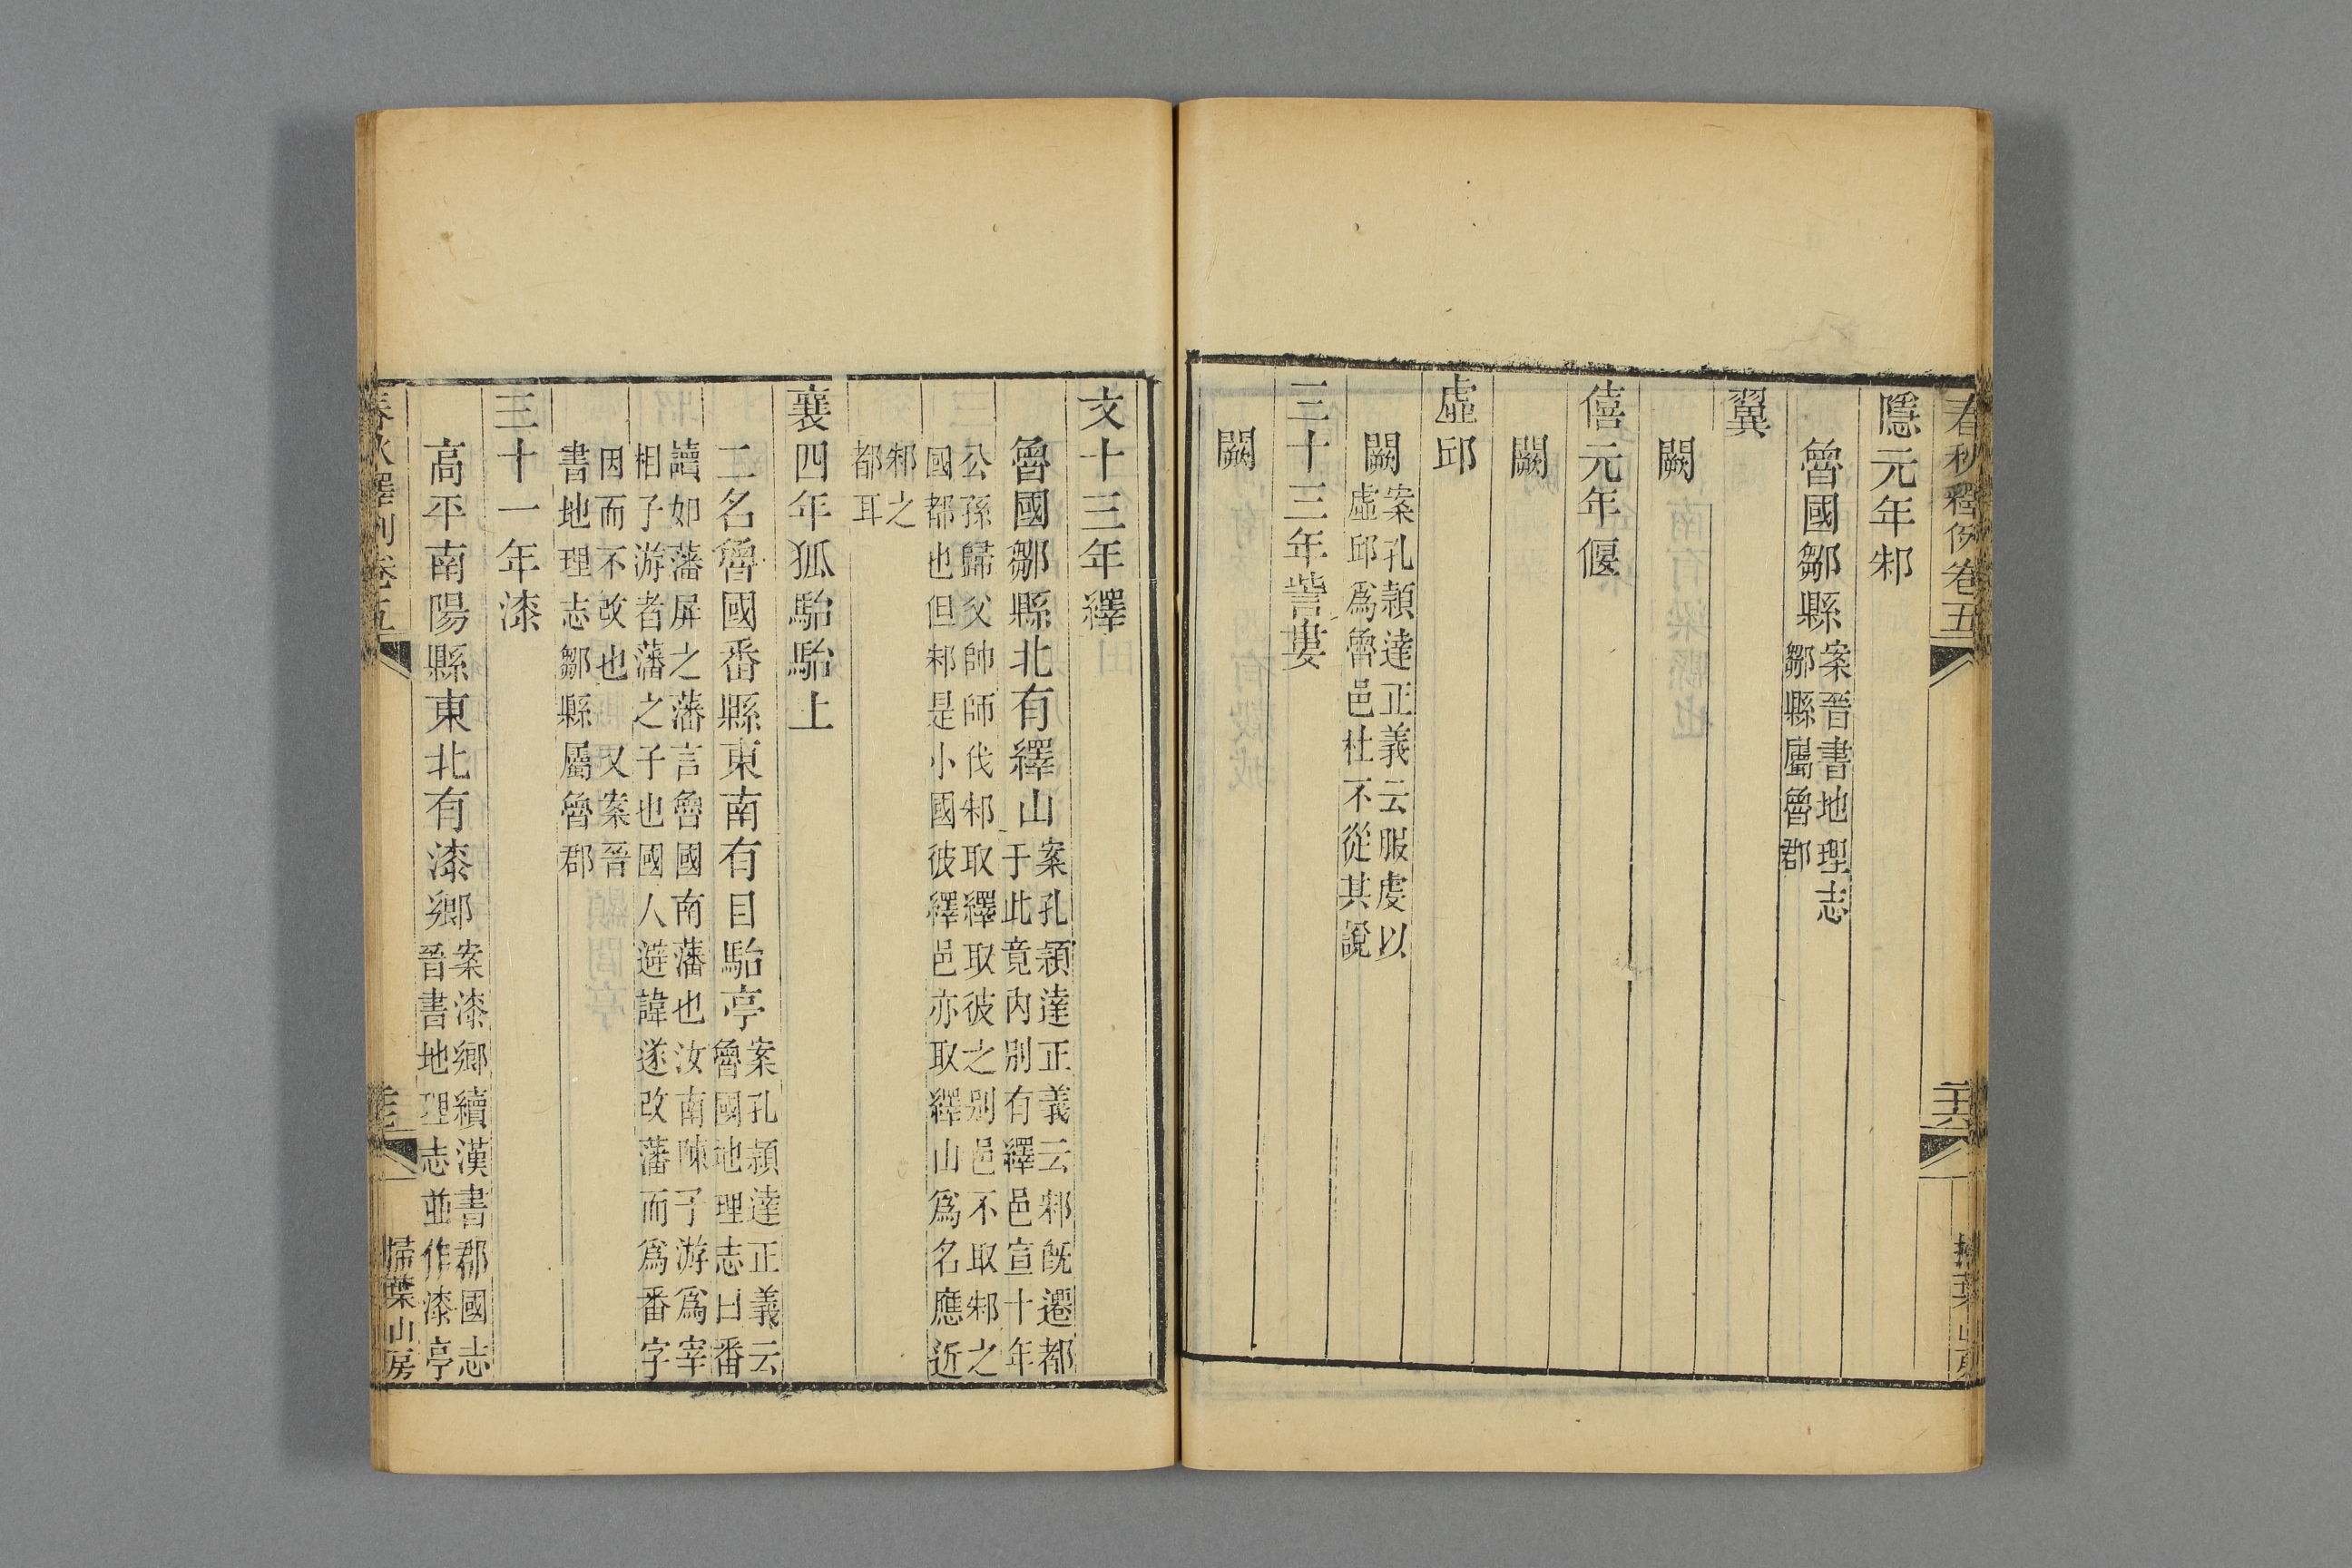 春秋釋例卷五
隱元年邾
魯國鄒縣案晉書地理志
鄒縣屬魯郡
翼
闕
僖元年偃
闕
虛邱
闕案孔穎達正義云服虔以
虛邱爲魯邑杜不從其說
三十三年訾婁
闕
文十三年繹
魯國鄒縣北有繹山案孔穎達正義云邾旣遷都
于此竟內別有繹邑宣十年
公孫歸父帥師伐邾取繹取彼之別邑不取邾之
國都也但邾是小國彼繹邑亦取繹山爲名應近
邾之
都耳
襄四年狐駘駘上
二名魯國番縣東南有目駘亭案孔穎達正義云
魯國地理志曰番
讀如藩屏之藩言魯國南藩也汝南陳子游爲宰
相子游者藩之子也國人避諱遂改藩而爲番字
因而不改也 又案晉
書地理志鄒縣屬魯郡
三十一年漆
高平南陽縣東北有漆鄉案漆鄉續漢書郡國志
晉書地理志並作漆亭
春秋釋例卷五
掃葉山房